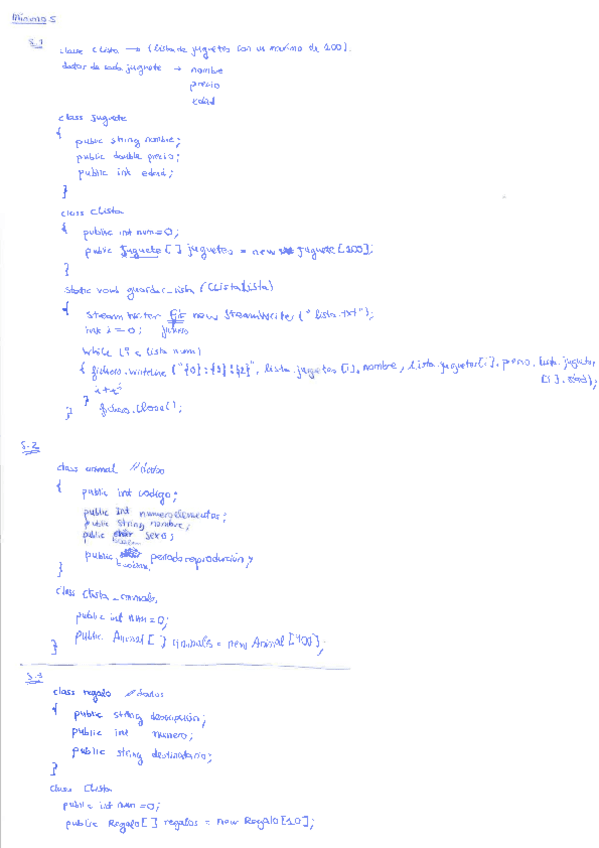 Mínimo 5
5.1 clase CLista → (Lista de juguetes con un maximo de 100).
datos de cada juguete → nombre
precio
edad
class Juguete
{
public string nombre;
public double precio;
public int edad;
}
class CLista
{ public int num=0;
public Juguete [ ] juguetes = new Juguete [100];
}
static void guardar_lista (CLista lista)
{
StreamWriter new StreamWriter ("lista.txt");
int i = 0; fichero
while (i < lista.num)
{ fichero.WriteLine ("{0}:{1}:{2}", lista.juguetes [i].nombre, lista.juguetes[i].precio, lista.juguetes
[i].edad);
i++;
}
} fichero.Close();
5.2
class animal // datos
{ public int codigo;
public int numeroelementos;
public string nombre;
public sexo;
public periodoreproducción;
boolean
}
class CLista_animales
public int num=0;
public Animal [ ] animales = new Animal [400];
}
5.3
class regalo // datos
{ public string descripción;
public int numero;
public string destinatario;
}
class CLista
public int num=0;
public Regalo[ ] regalos = new Regalo[10];